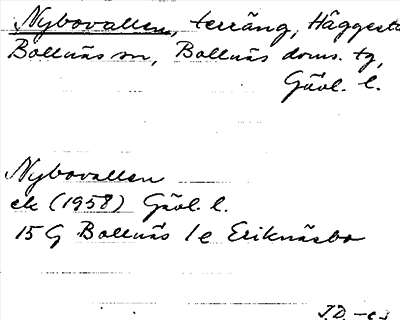 Nybovallen, terräng, Häggesta
Bollnäs sn, Bollnäs doms. tg,
Gävl. l.
Nybovallen
ek (1958) Gävl. l.
15G Bollnäs 1e Eriknäsbo
J.D. -63